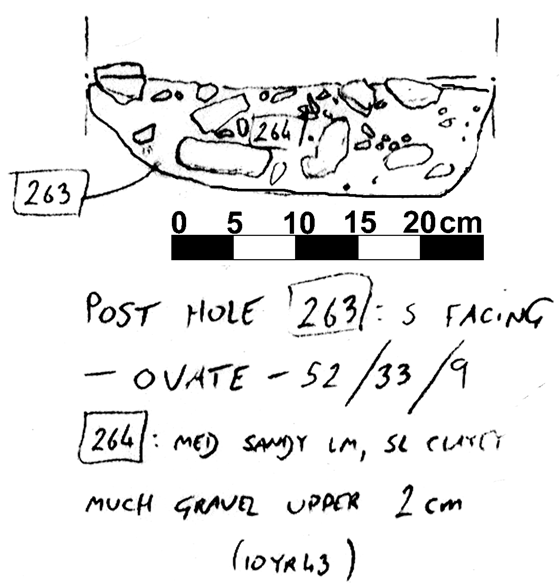 264
263
0 5 10 15 20 cm
POST HOLE 263: S FACING
— OVATE — 52/33/9
264: MED SANDY LM, SL CLAYEY
MUCH GRAVEL UPPER 2 cm
(10YR43)